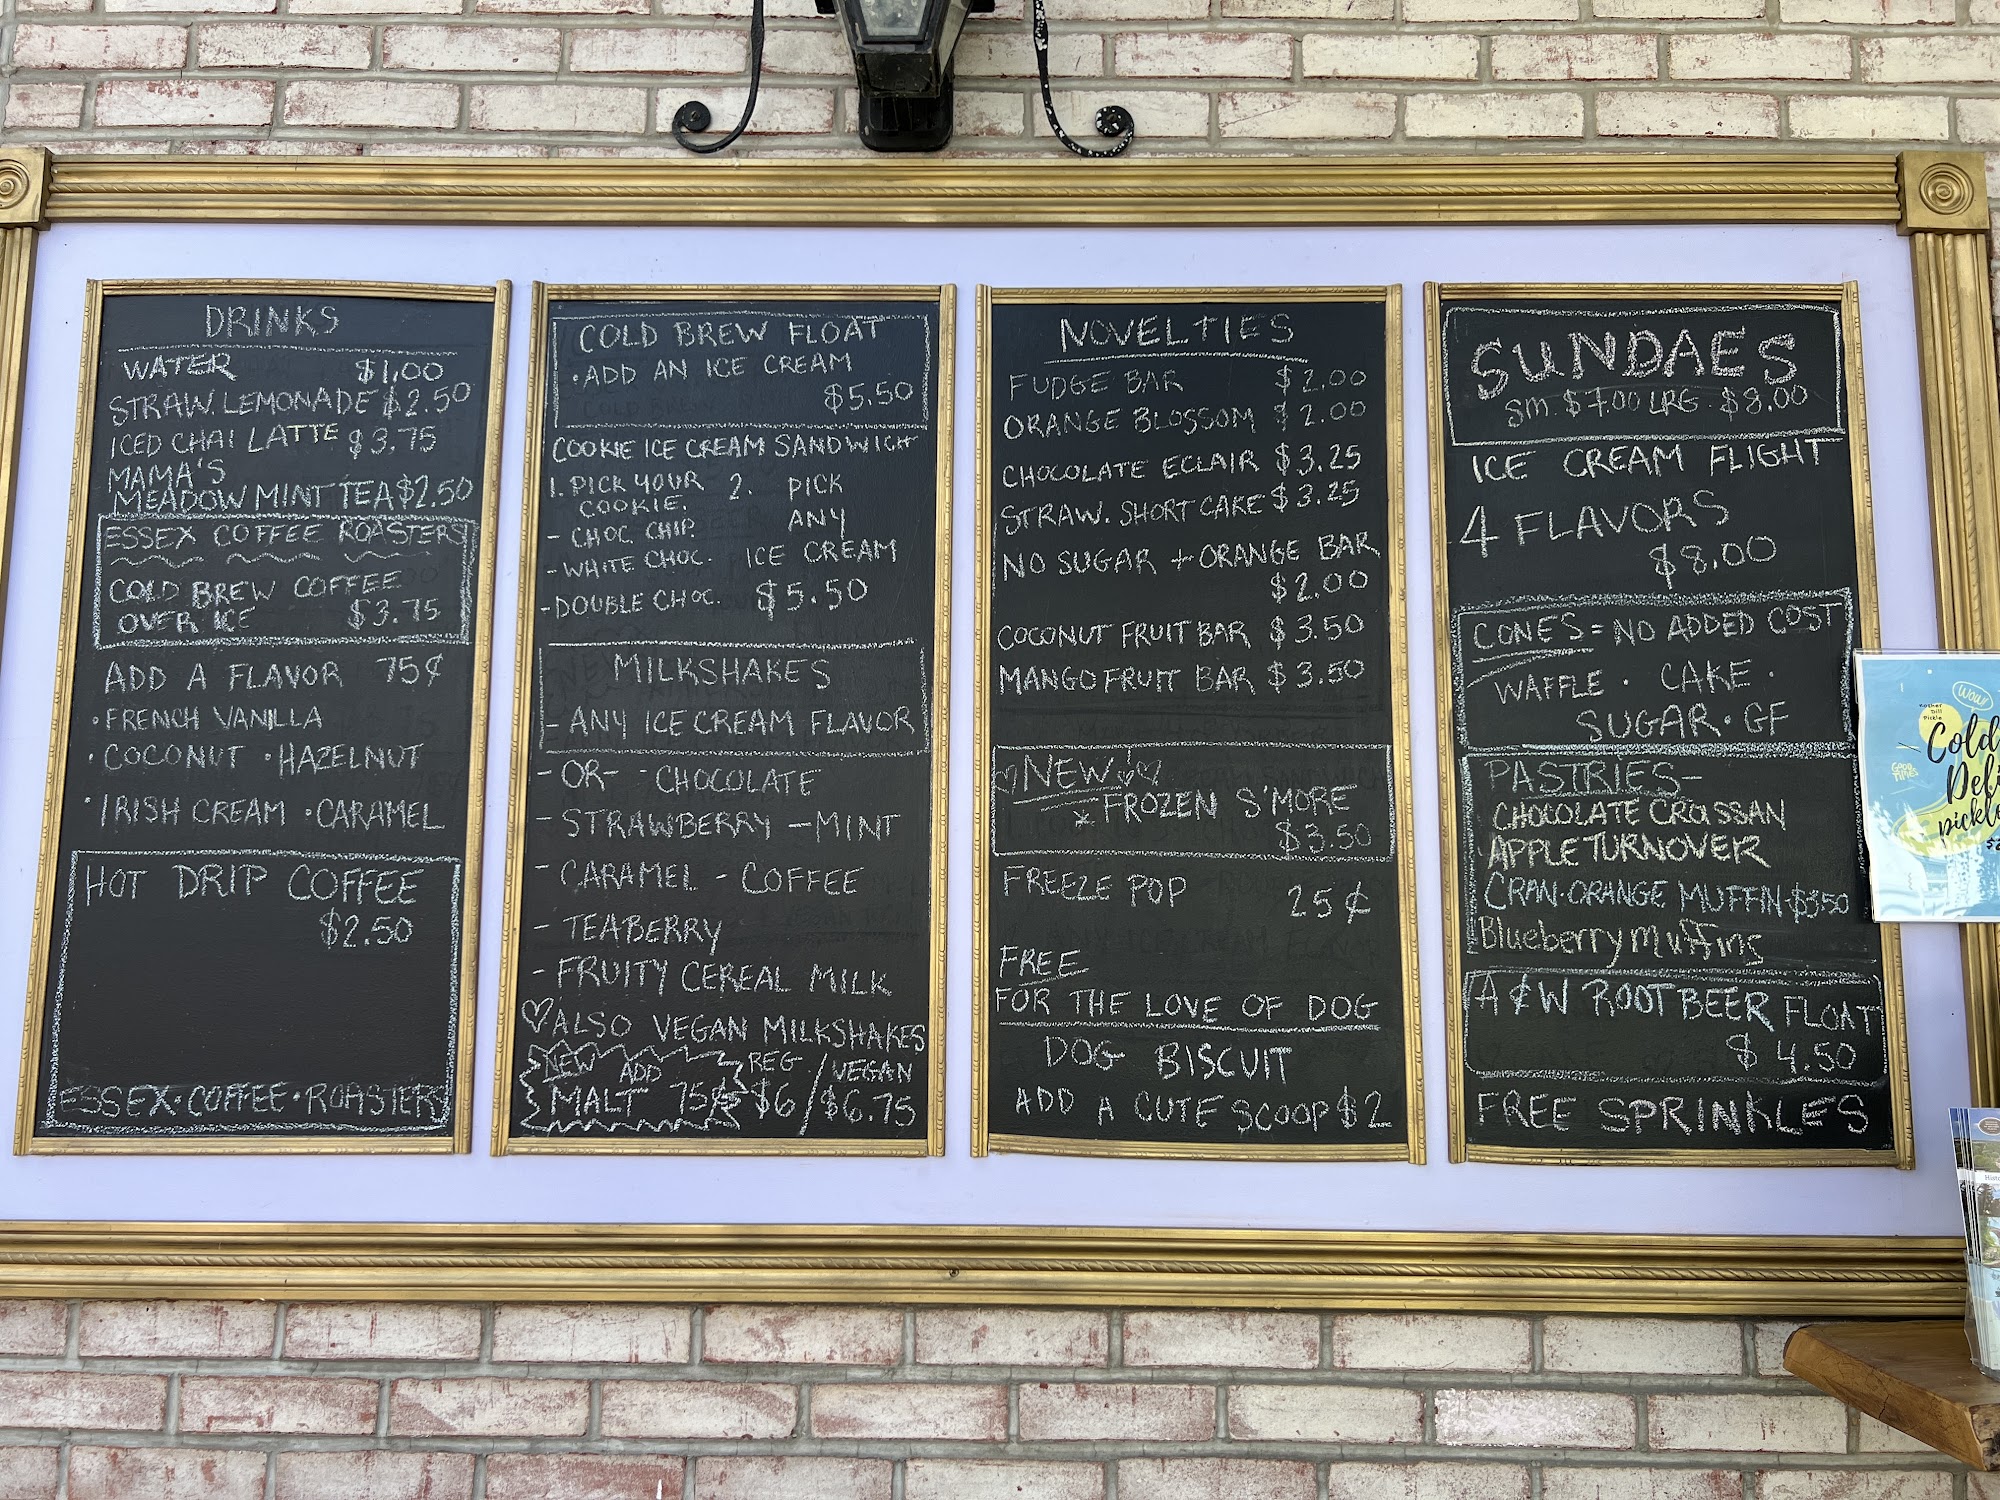 DRINKS
WATER $1.00
STRAW. LEMONADE $2.50
ICED CHAI LATTE $3.75
MAMA'S
MEADOW MINT TEA $2.50
ESSEX COFFEE ROASTERS
COLD BREW COFFEE
OVER ICE $3.75
ADD A FLAVOR 75¢
• FRENCH VANILLA
• COCONUT • HAZELNUT
• IRISH CREAM • CARAMEL
HOT DRIP COFFEE
$2.50
ESSEX • COFFEE • ROASTERS
COLD BREW FLOAT
• ADD AN ICE CREAM
$5.50
COOKIE ICE CREAM SANDWICH
1. PICK YOUR
COOKIE.
- CHOC. CHIP.
- WHITE CHOC.
- DOUBLE CHOC.
2. PICK
ANY
ICE CREAM
$5.50
MILKSHAKES
- ANY ICE CREAM FLAVOR
- OR - - CHOCOLATE
- STRAWBERRY - MINT
- CARAMEL - COFFEE
- TEABERRY
- FRUITY CEREAL MILK
♡ ALSO VEGAN MILKSHAKES
NEW ADD
MALT 75¢
REG / VEGAN
$6 / $6.75
NOVELTIES
FUDGE BAR $2.00
ORANGE BLOSSOM $2.00
CHOCOLATE ECLAIR $3.25
STRAW. SHORT CAKE $3.25
NO SUGAR + ORANGE BAR
$2.00
COCONUT FRUIT BAR $3.50
MANGO FRUIT BAR $3.50
♡ NEW! ♡
* FROZEN S'MORE
$3.50
FREEZE POP 25¢
FREE
FOR THE LOVE OF DOG
DOG BISCUIT
ADD A CUTE SCOOP $2
SUNDAES
SM. $7.00 LRG. $8.00
ICE CREAM FLIGHT
4 FLAVORS
$8.00
CONES = NO ADDED COST
WAFFLE • CAKE •
SUGAR • GF
PASTRIES -
CHOCOLATE CROISSAN
APPLE TURNOVER
CRAN-ORANGE MUFFIN - $3.50
Blueberry muffins
A&W ROOT BEER FLOAT
$4.50
FREE SPRINKLES
Wow!
nother
Dill
Pickle
Cold
Deli
pickle
GOOD
TIMES